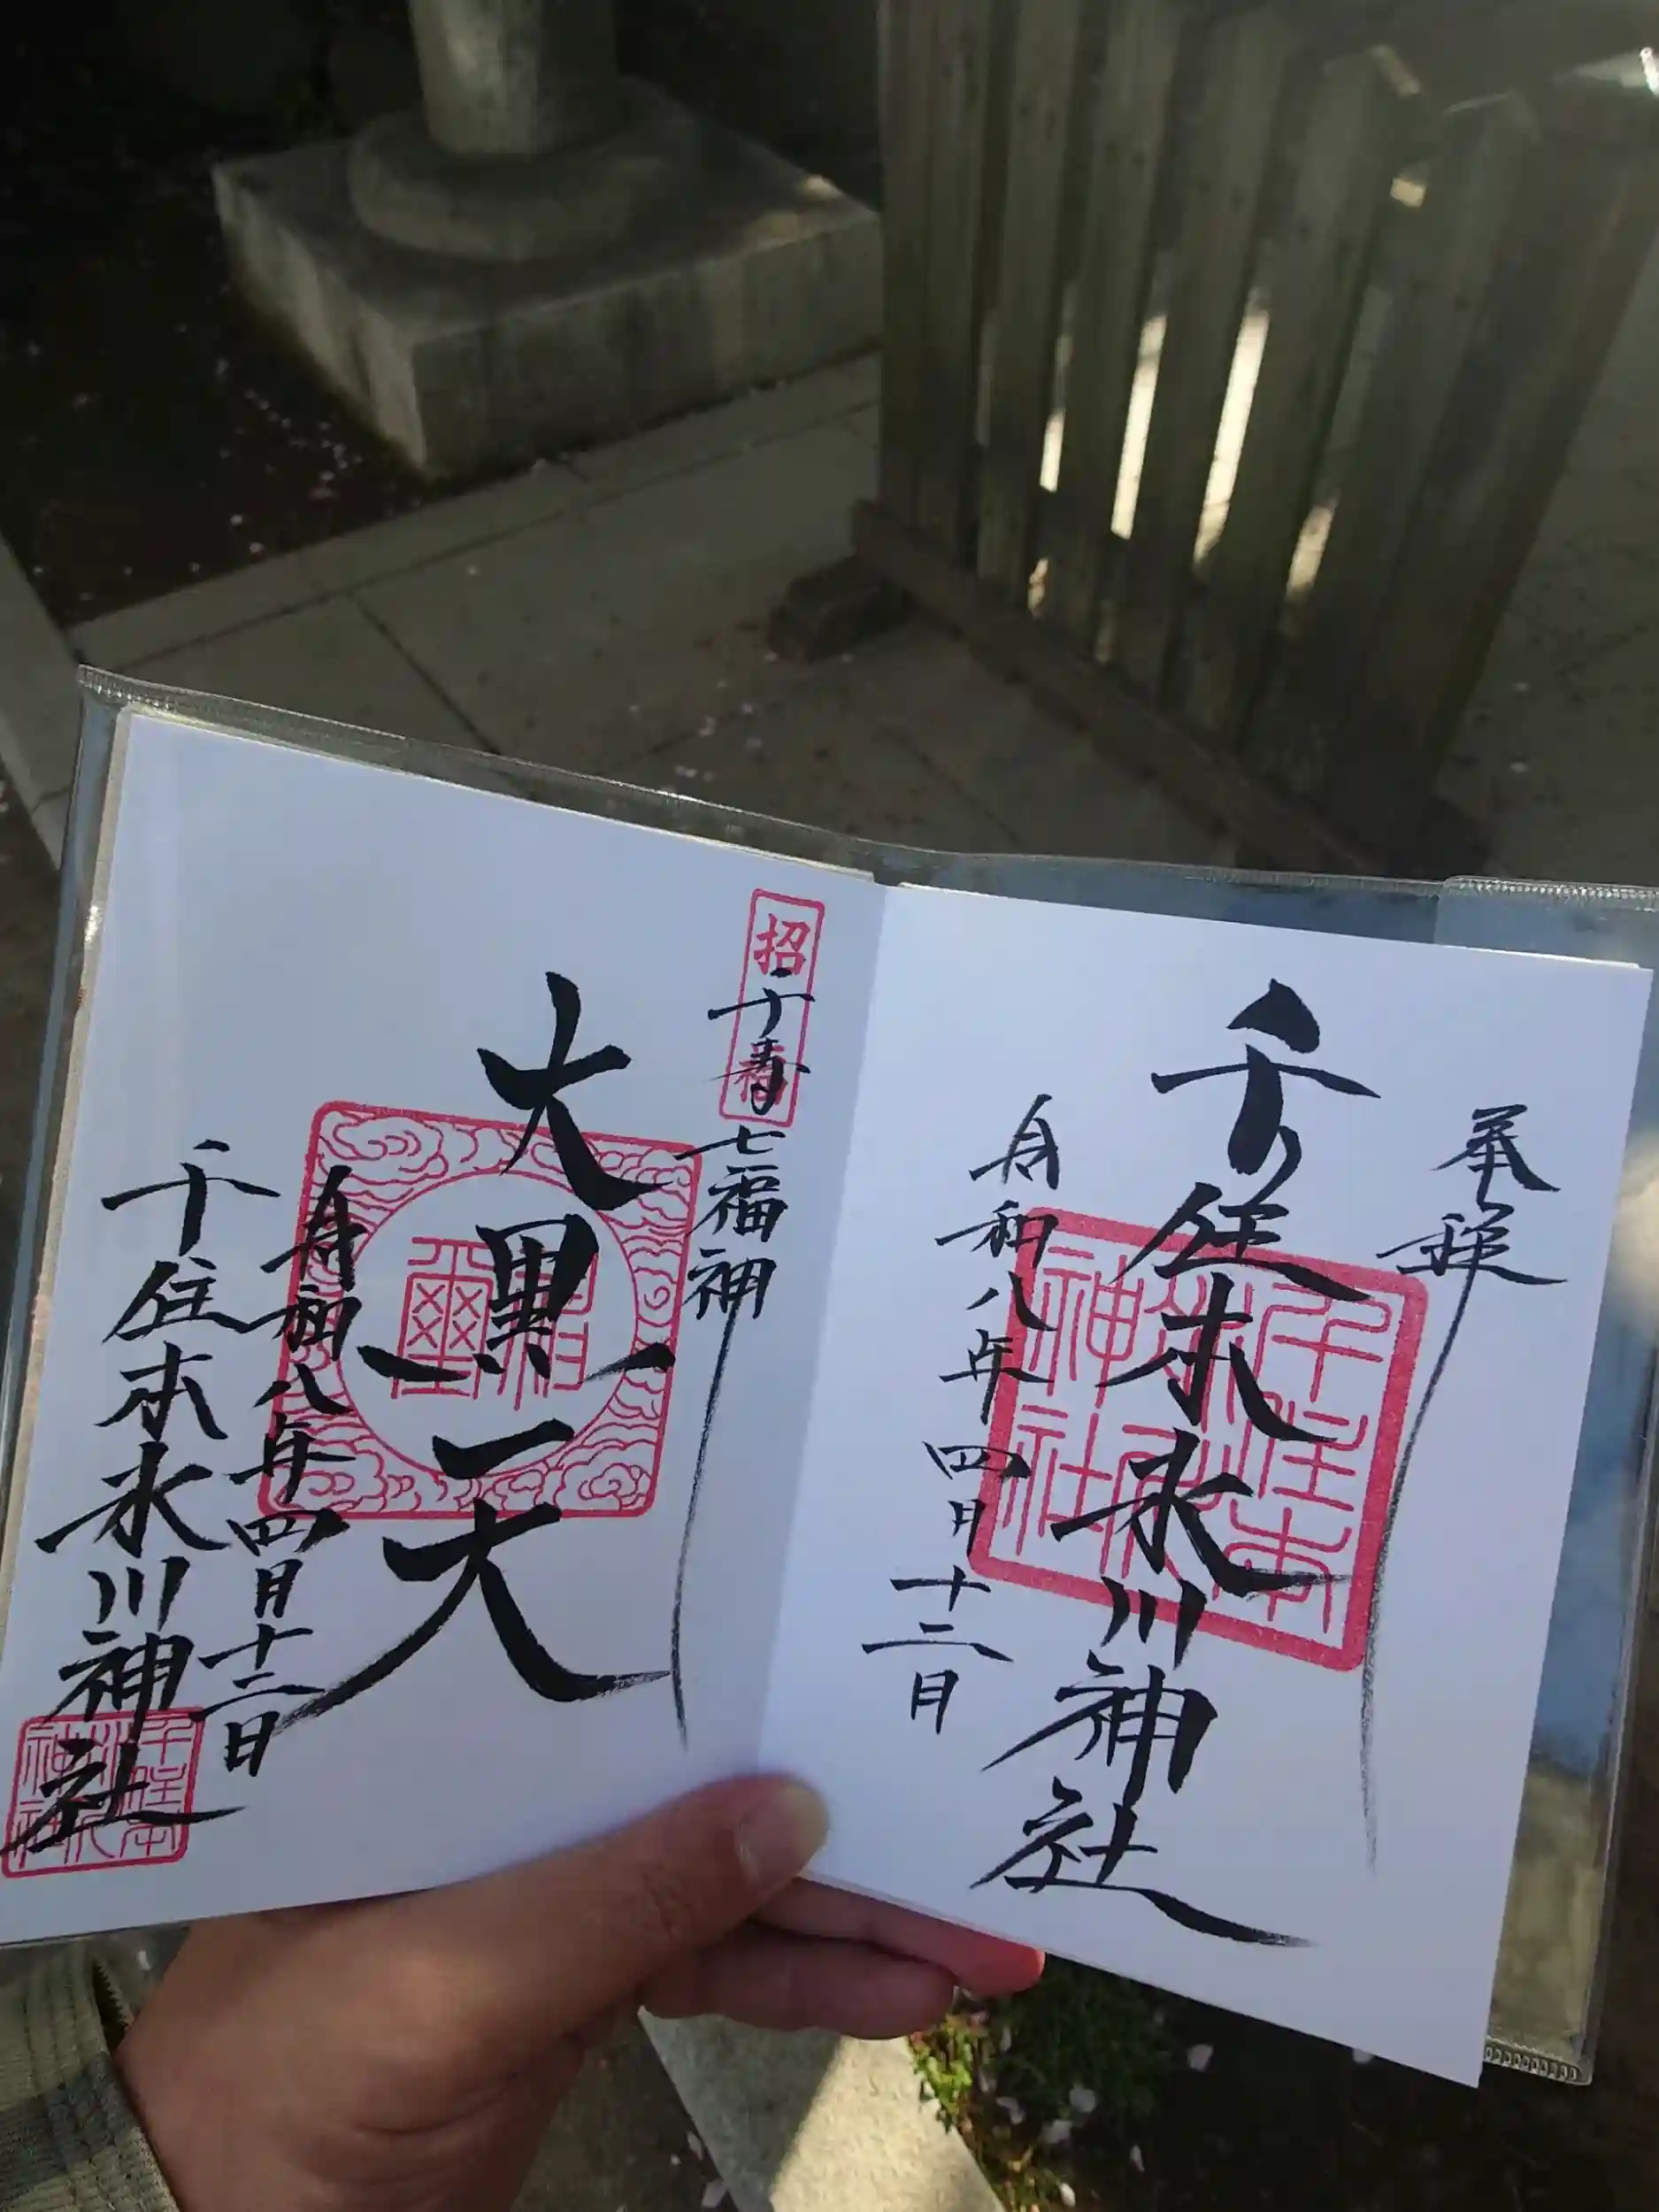 奉拝
千住本氷川神社
千住本氷川神社
令和八年四月十二日
招福
千寿七福神
大黒天
令和八年四月十二日
千住本氷川神社
千住本氷川神社